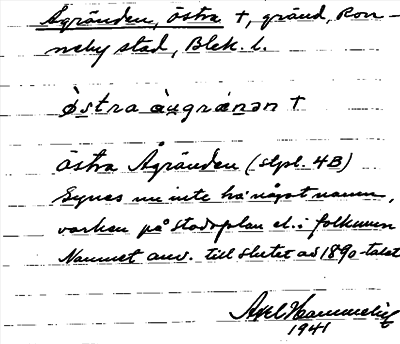 Ågränden, östra †, gränd, Ron-
neby stad, Blek. l.
östra ågrändən †
östra Ågränden (stpl. 4B)
Synes nu inte ha något namn,
varken på stadsplan el. i folkmun
Namnet anv. till slutet av 1890-talet
Axel Hammelig
1941